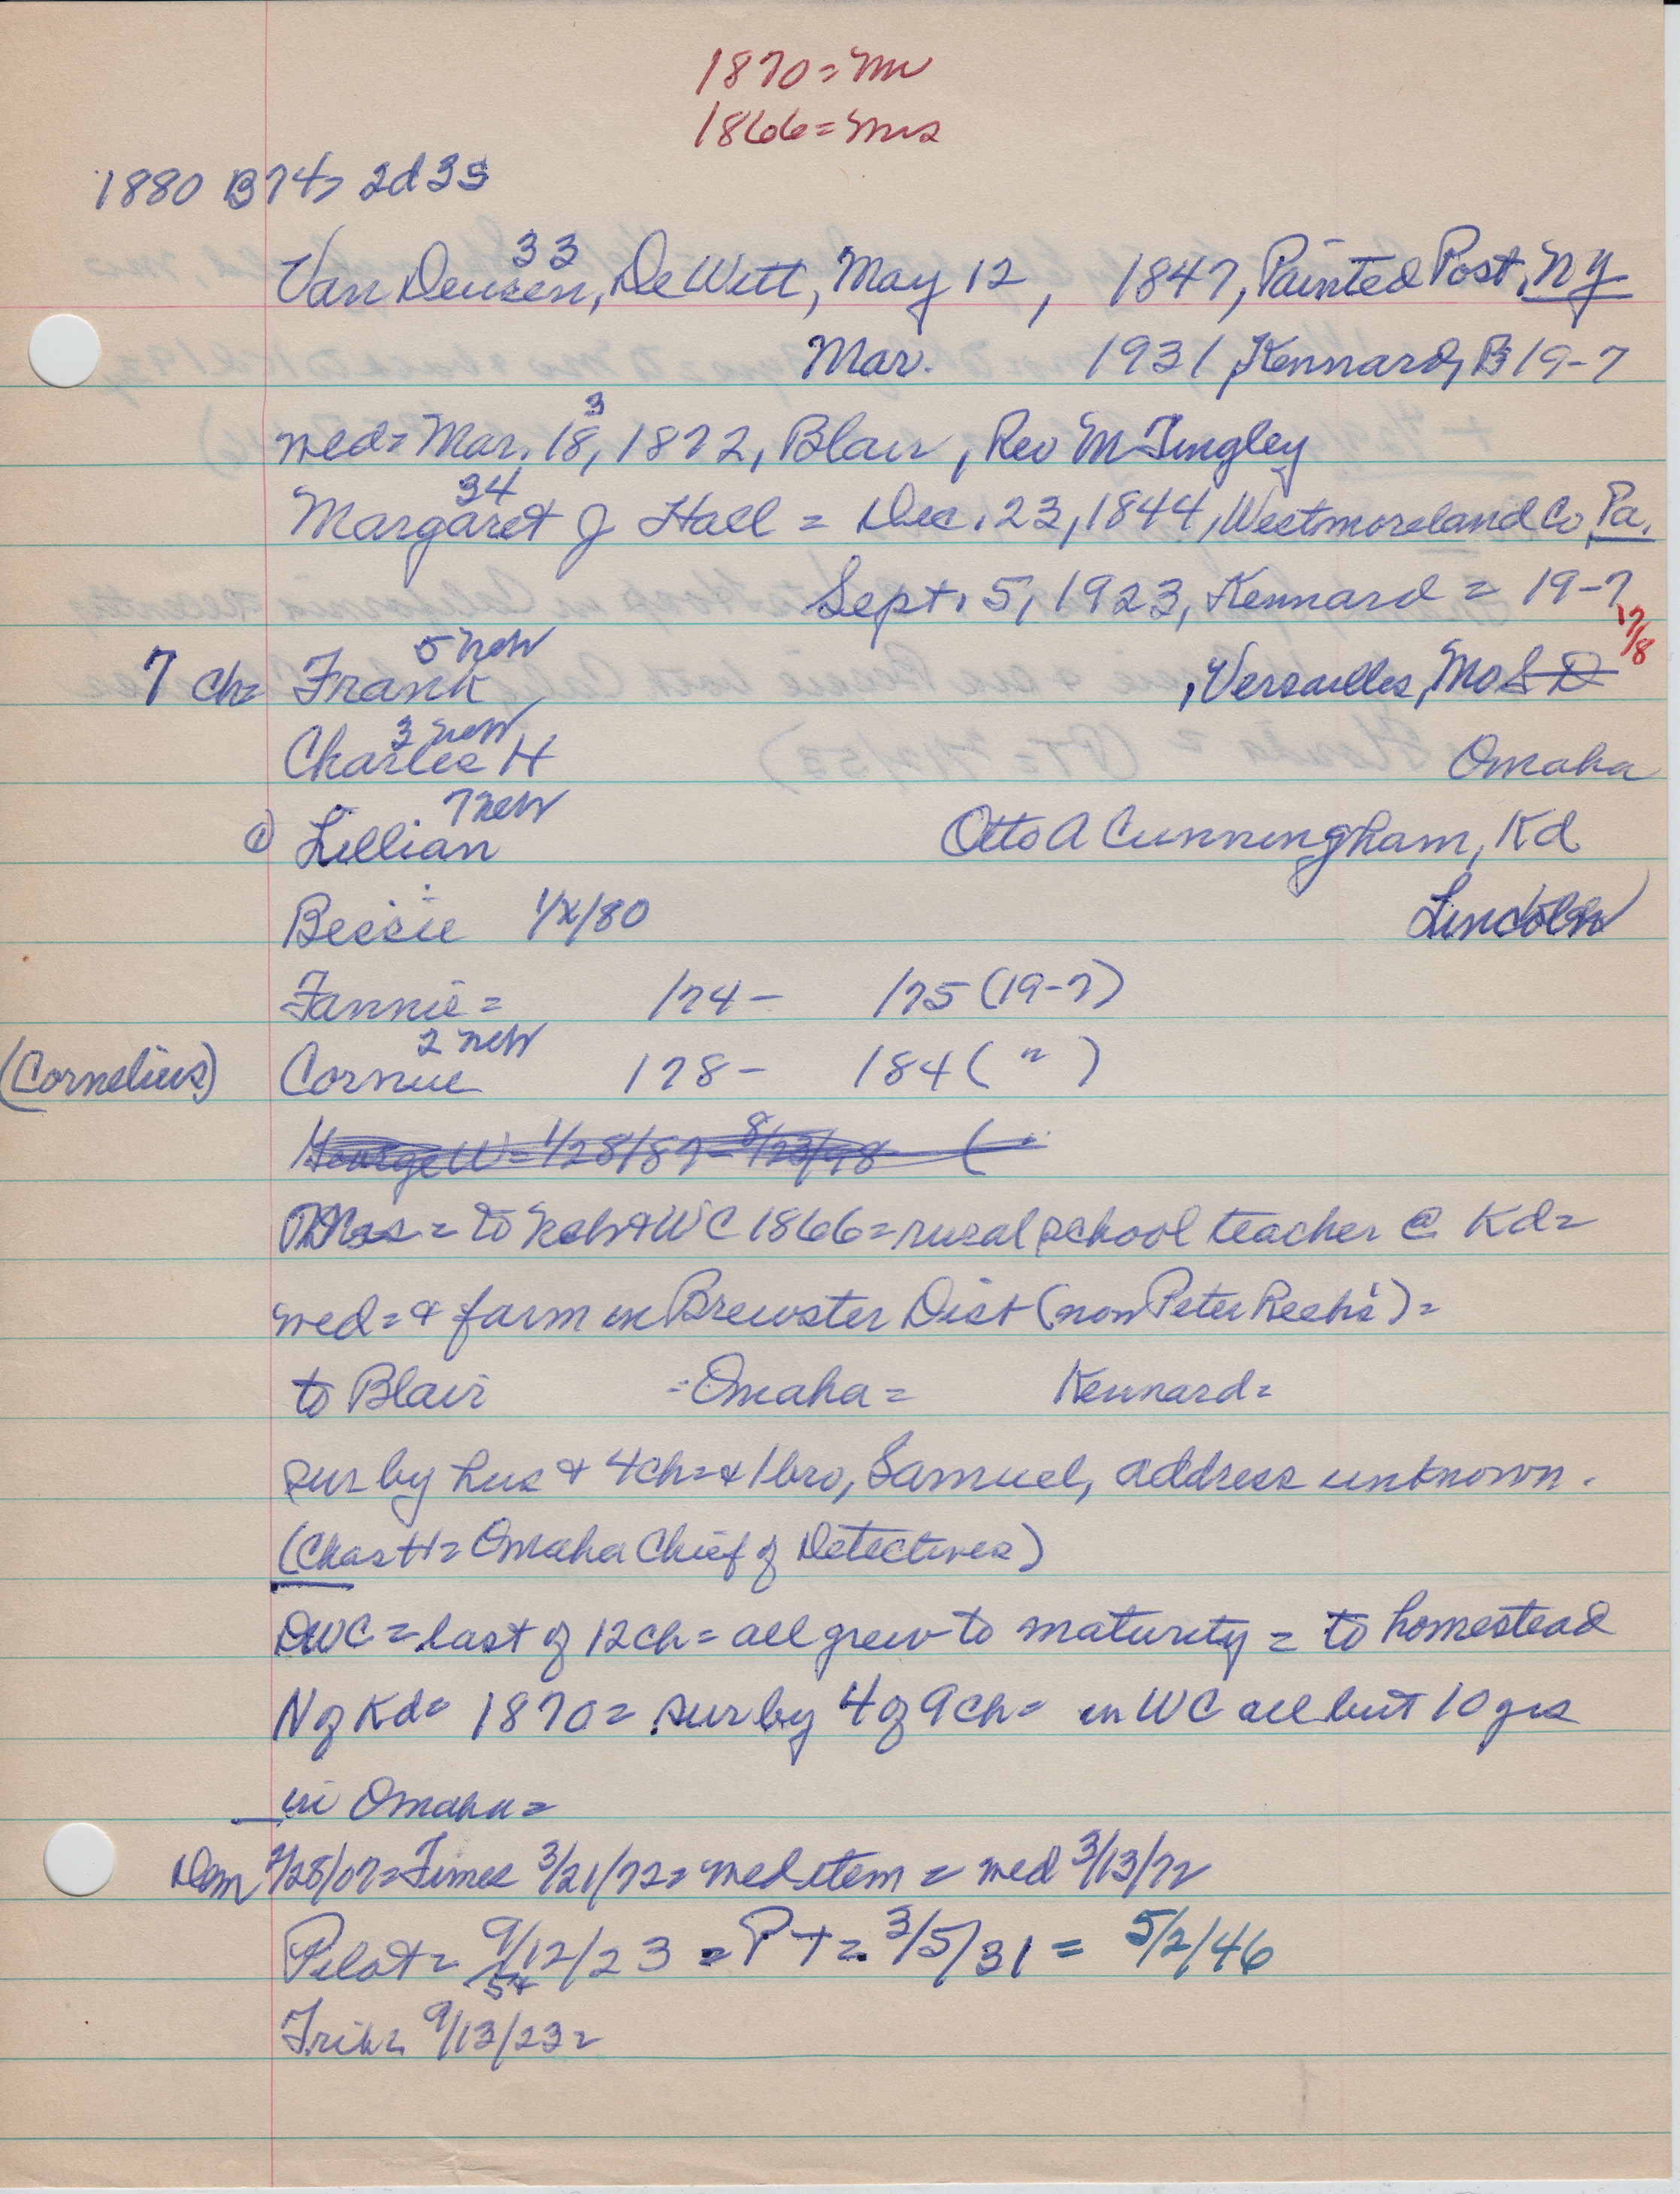 1870 = Mr
1866 = Mrs
1880 B 747 2d 3s
33
Van Deusen, DeWitt, May 12, 1847, Painted Post, NY
Mar. 1931 Kennard, B 19-7
wed = Mar. 18, 1872, Blair, Rev M Tingley
3
34
Margaret J Hall = Dec. 23, 1844, Westmoreland Co Pa.
Sept. 5, 1923, Kennard = 19-7
17/8
5 new
7 ch = Frank , Versailles, Mo S D
3 new
Charles H Omaha
7 new
Lillian Otto A Cunningham, Kd
Bessie 1/x/80 Lincoln
Fannie = /74 - /75 (19-7)
2 new
(Cornelius) Cornue /78 - /84 ( " )
George W = 1/28/87 - 8/23/98 ( "
Mrs = to Neb & WC 1866 = rural school teacher @ Kd =
wed = & farm in Brewster Dist (now Peter Reeh's) =
to Blair - Omaha = Kennard =
sur by hus & 4 ch = & 1 bro, Samuel, address unknown.
(Chas H = Omaha Chief of Detectives)
DWC = last of 12 ch = all grew to maturity = to homestead
N of Kd = 1870 = sur by 4 of 9 ch = in WC all but 10 yrs
in Omaha =
Dem 2/28/07 = Times 3/21/72 = wed item = wed 3/13/72
Pilot = 9/12/23 = P T = 3/5/31 = 5/2/46
Trib = 9/13/23 =